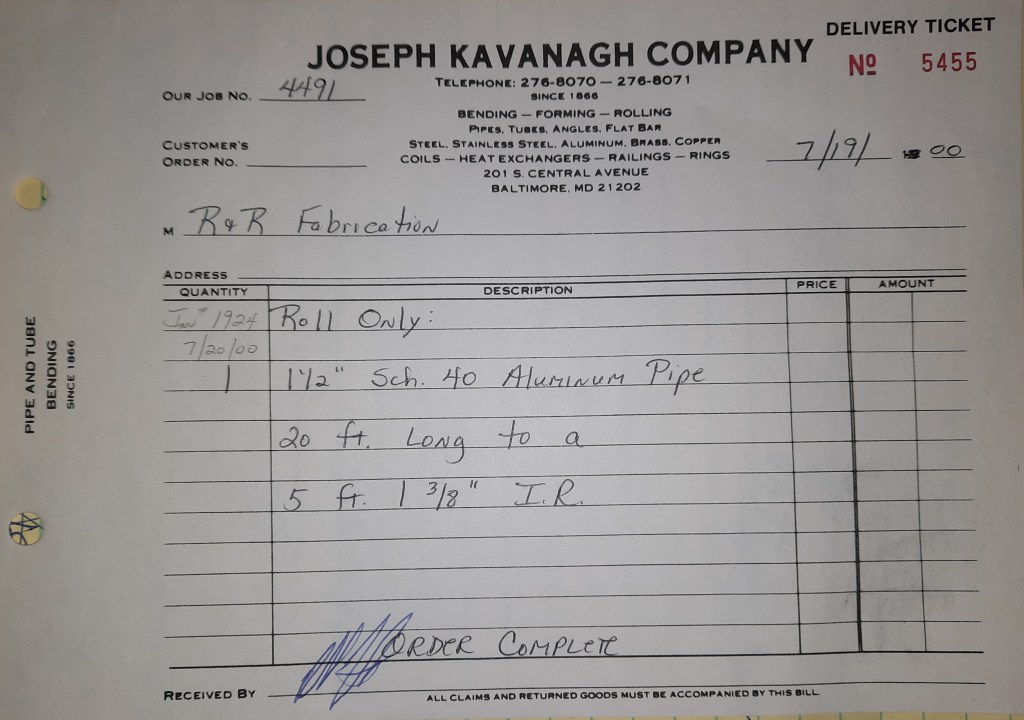 DELIVERY TICKET
JOSEPH KAVANAGH COMPANY
Nº 5455
TELEPHONE: 276-8070 — 276-8071
OUR JOB NO. 4491
SINCE 1866
BENDING — FORMING — ROLLING
PIPES, TUBES, ANGLES, FLAT BAR
CUSTOMER'S
ORDER NO.
STEEL, STAINLESS STEEL, ALUMINUM, BRASS, COPPER
COILS — HEAT EXCHANGERS — RAILINGS — RINGS
7/19/ 00
201 S. CENTRAL AVENUE
BALTIMORE, MD 21202
M R & R Fabrication
ADDRESS
QUANTITY DESCRIPTION PRICE AMOUNT
1924 Roll Only:
7/20/00
1 1 1/2" Sch. 40 Aluminum Pipe
20 ft. Long to a
5 ft. 1 3/8" I.R.
ORDER COMPLETE
RECEIVED BY
ALL CLAIMS AND RETURNED GOODS MUST BE ACCOMPANIED BY THIS BILL
PIPE AND TUBE
BENDING
SINCE 1866